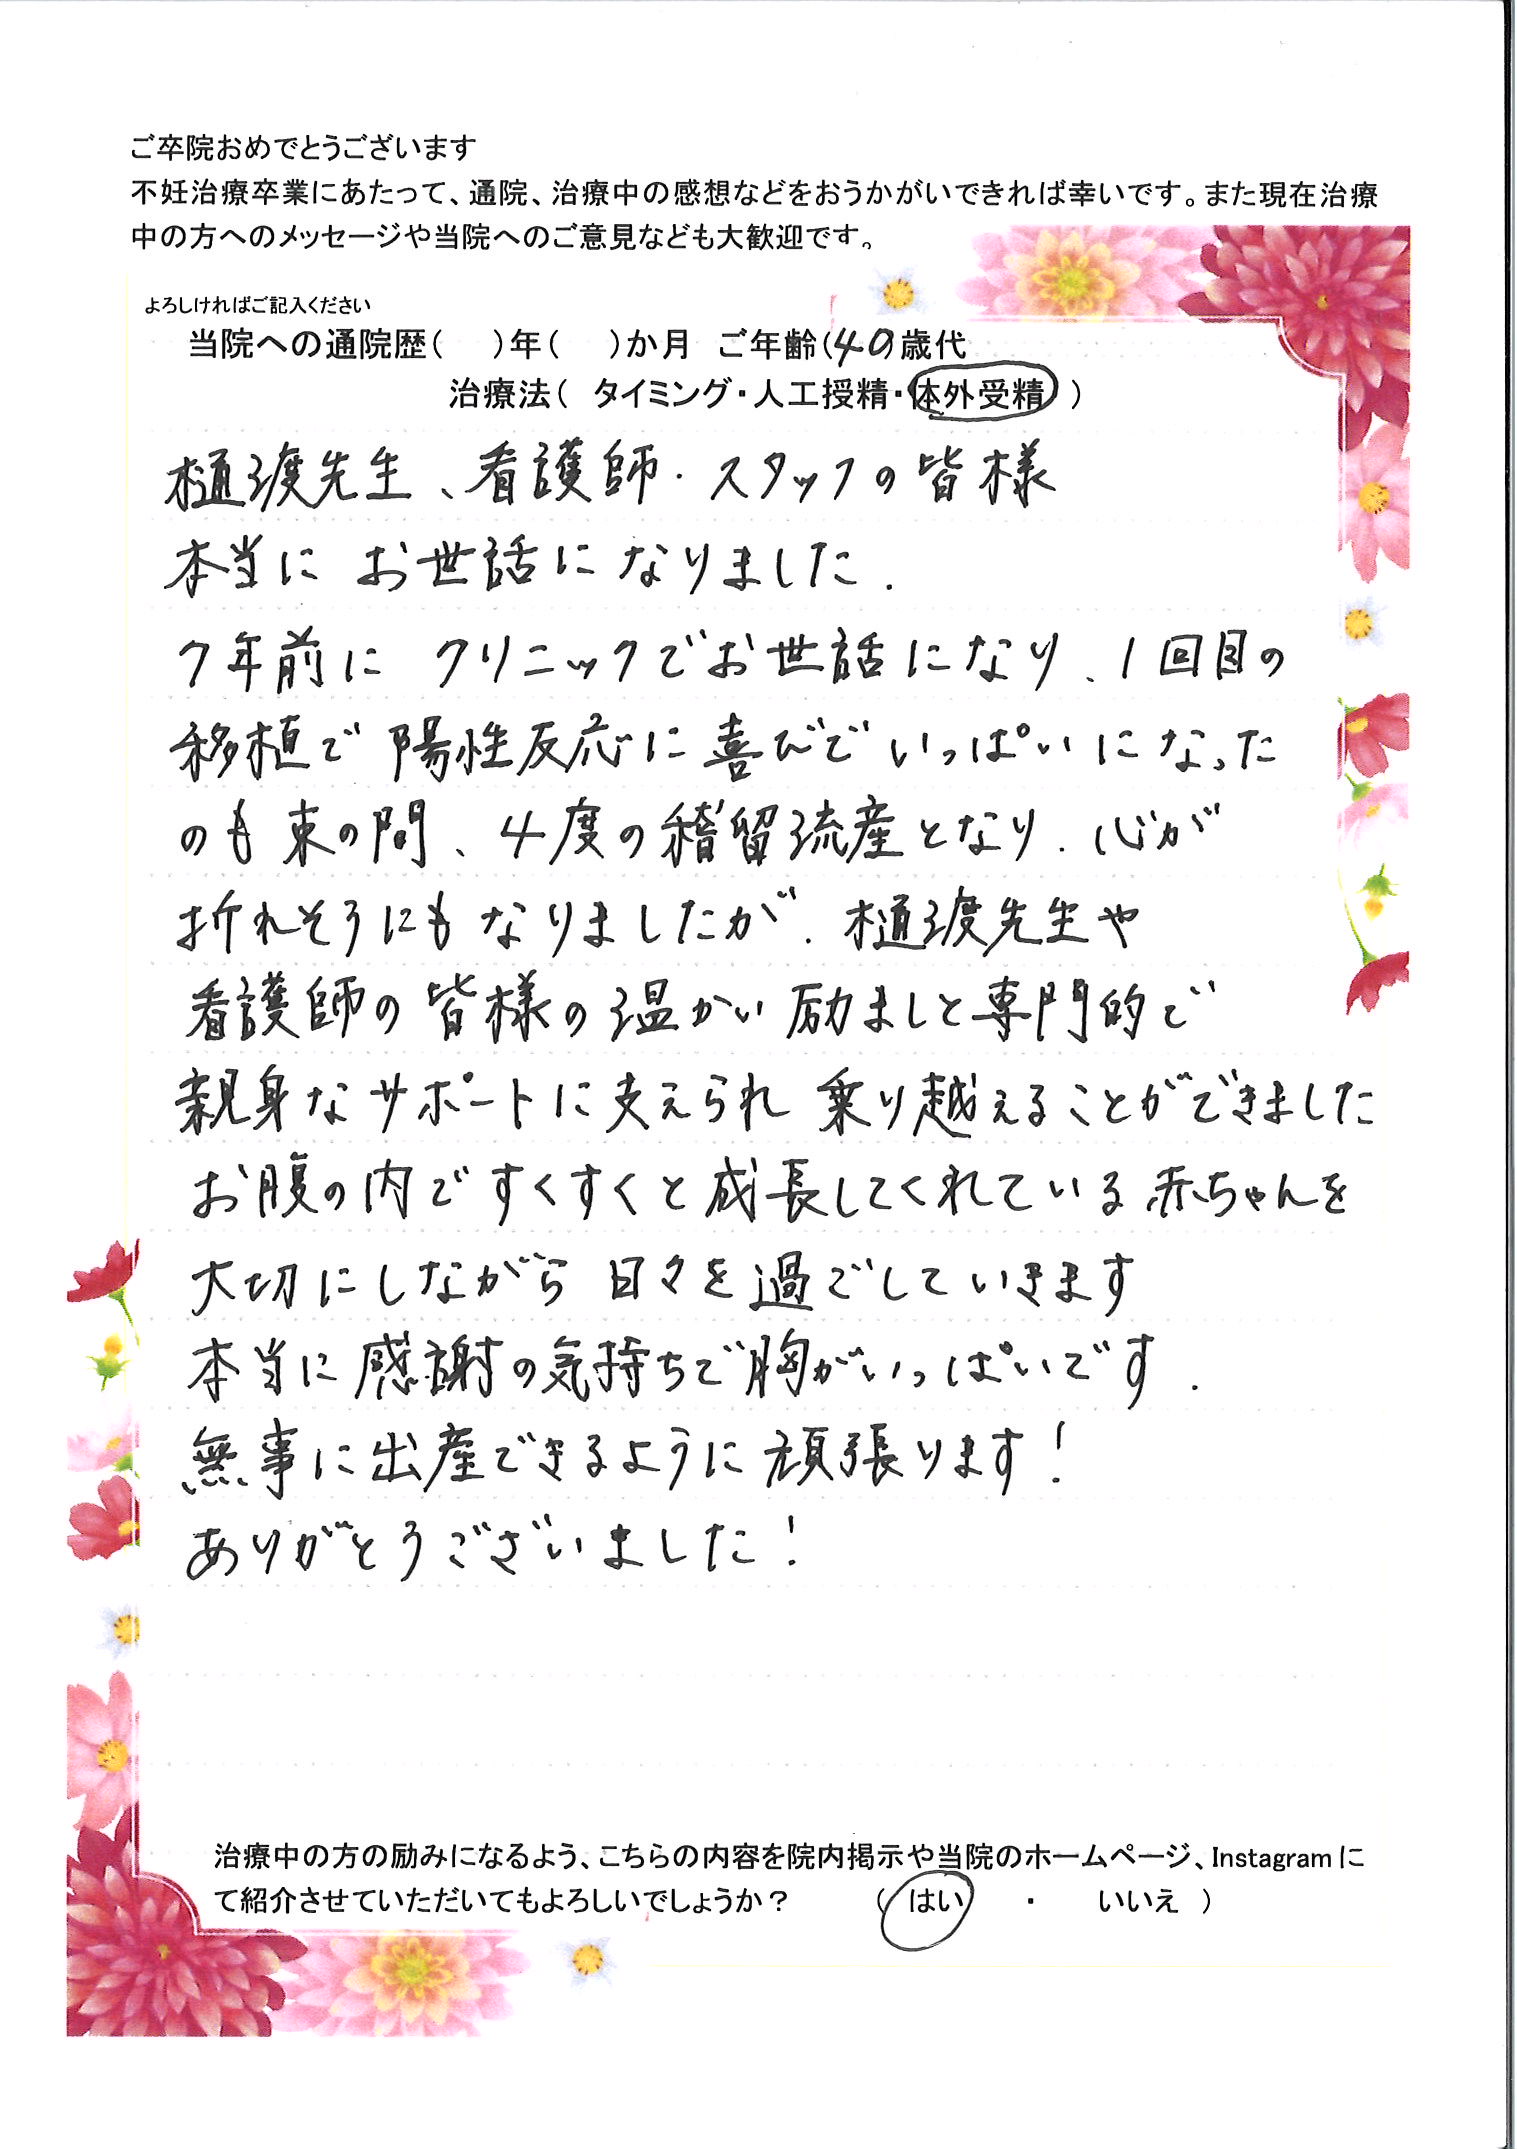 ご卒院おめでとうございます
不妊治療卒業にあたって、通院、治療中の感想などをおうかがいできれば幸いです。また現在治療
中の方へのメッセージや当院へのご意見なども大歓迎です。
よろしければご記入ください
当院への通院歴(　)年(　)か月 ご年齢(40)歳代
治療法( タイミング・人工授精・体外受精 )
樋渡先生、看護師・スタッフの皆様
本当に お世話になりました.
7年前に クリニックでお世話になり、1回目の
移植で 陽性反応に喜びでいっぱいになった
のも束の間、4度の稽留流産となり、心が
折れそうにもなりましたが、樋渡先生や
看護師の皆様の温かい励ましと専門的で
親身なサポートに支えられ 乗り越えることができました
お腹の内ですくすくと成長してくれている赤ちゃんを
大切にしながら 日々を過ごしていきます
本当に感謝の気持ちで胸がいっぱいです.
無事に出産できるように頑張ります!
ありがとうございました!
治療中の方の励みになるよう、こちらの内容を院内掲示や当院のホームページ、Instagramに
て紹介させていただいてもよろしいでしょうか? ( はい ・ いいえ )